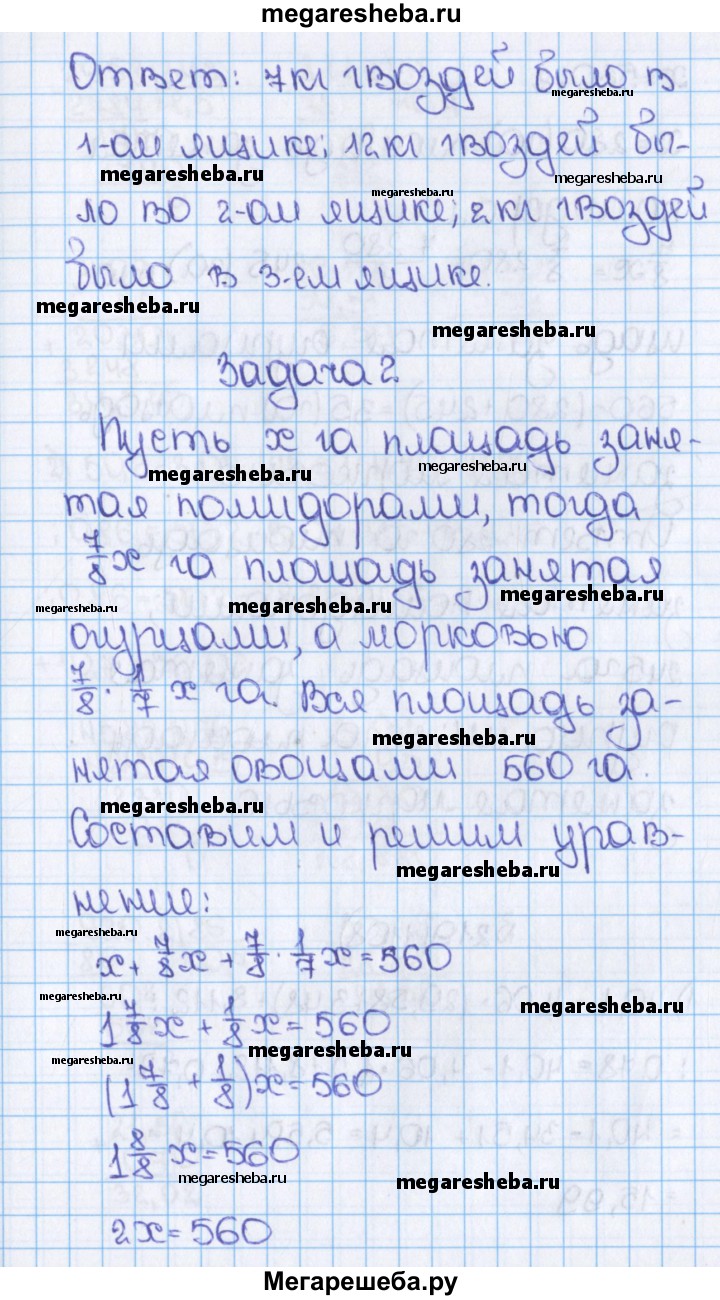 megaresheba.ru
Ответ: 7кг гвоздей было в
megaresheba.ru
1-ом ящике; 12кг гвоздей бы-
megaresheba.ru
megaresheba.ru
megaresheba.ru
ло во 2-ом ящике; 2кг гвоздей
было в 3-ем ящике.
megaresheba.ru
megaresheba.ru
Задача 2.
Пусть x га площадь заня-
megaresheba.ru
megaresheba.ru
тая помидорами, тогда
7/8 x га площадь занятая
megaresheba.ru
megaresheba.ru
megaresheba.ru
огурцами, а морковью
7/8 · 1/7 x га. Вся площадь за-
megaresheba.ru
нятая овощами 560 га.
megaresheba.ru
Составим и решим урав-
megaresheba.ru
нение:
megaresheba.ru
x + 7/8 x + 7/8 · 1/7 x = 560
megaresheba.ru
megaresheba.ru
1 7/8 x + 1/8 x = 560
megaresheba.ru
megaresheba.ru
(1 7/8 + 1/8) x = 560
1 8/8 x = 560
megaresheba.ru
megaresheba.ru
2x = 560
Мегарешеба.ру